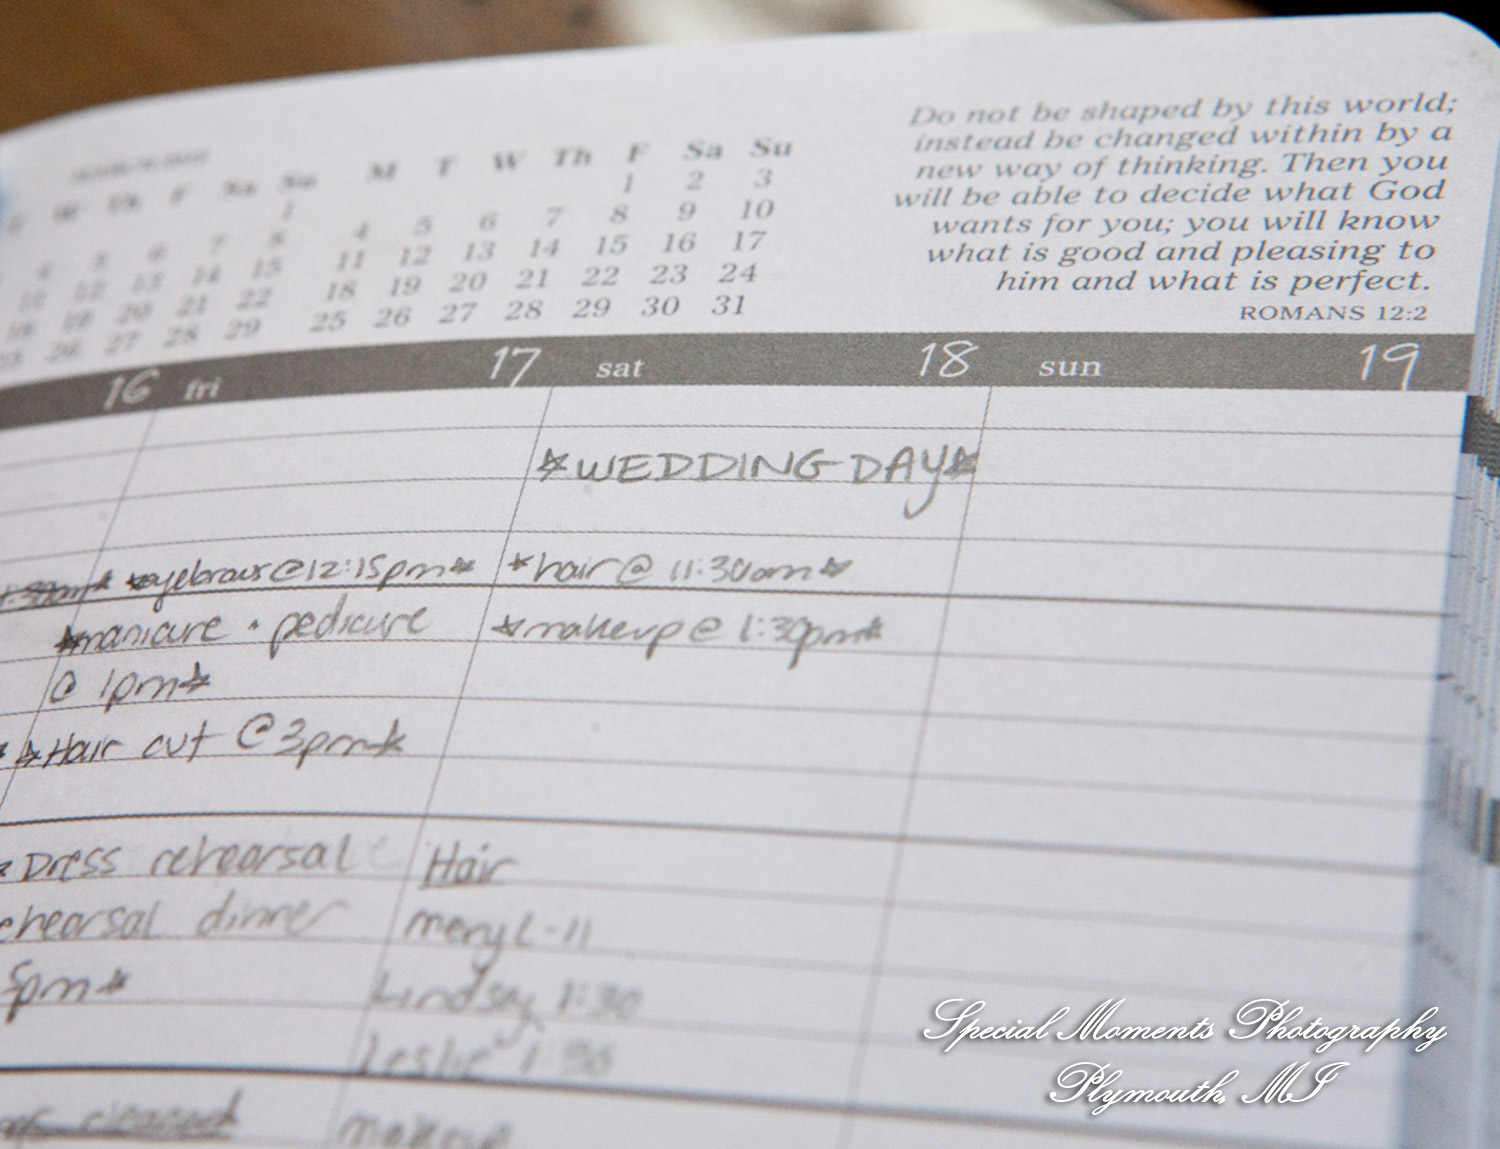 M T W Th F Sa Su
1 2 3
4 5 6 7 8 9 10
11 12 13 14 15 16 17
18 19 20 21 22 23 24
25 26 27 28 29 30 31
W Th F Sa Su
1
4 5 6 7 8
11 12 13 14 15
18 19 20 21 22
25 26 27 28 29
Do not be shaped by this world;
instead be changed within by a
new way of thinking. Then you
will be able to decide what God
wants for you; you will know
what is good and pleasing to
him and what is perfect.
ROMANS 12:2
16 fri 17 sat 18 sun 19
*eyebrows @ 12:15pm*
*manicure • pedicure
@ 1pm*
*Hair cut @ 3pm*
*Dress rehearsal
rehearsal dinner
5pm*
cleaned
*WEDDING DAY*
*hair @ 11:30am*
*makeup @ 1:30pm*
Hair
meryl - 11
Lindsay 1:30
Leslie
makeup
Special Moments Photography
Plymouth, MI